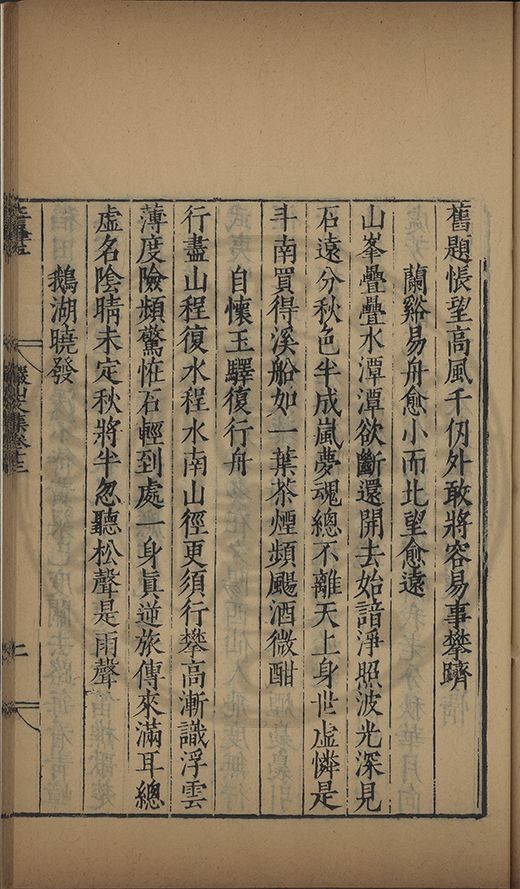 舊題悵望高風千仞外敢將容易事攀躋
蘭谿易舟愈小而北望愈遠
山峯疊疊水潭潭欲斷還開去始諳淨照波光深見
石遠分秋色半成嵐夢魂總不離天上身世虛憐是
斗南買得溪船如一葉茶煙頻颺酒微酣
自懷玉驛復行舟
行盡山程復水程水南山徑更須行攀高漸識浮雲
薄度險頻驚恠石輕到處一身眞逆旅傳來滿耳總
虛名陰晴未定秋將半忽聽松聲是雨聲
鵝湖曉發
儼山文集卷十三
上